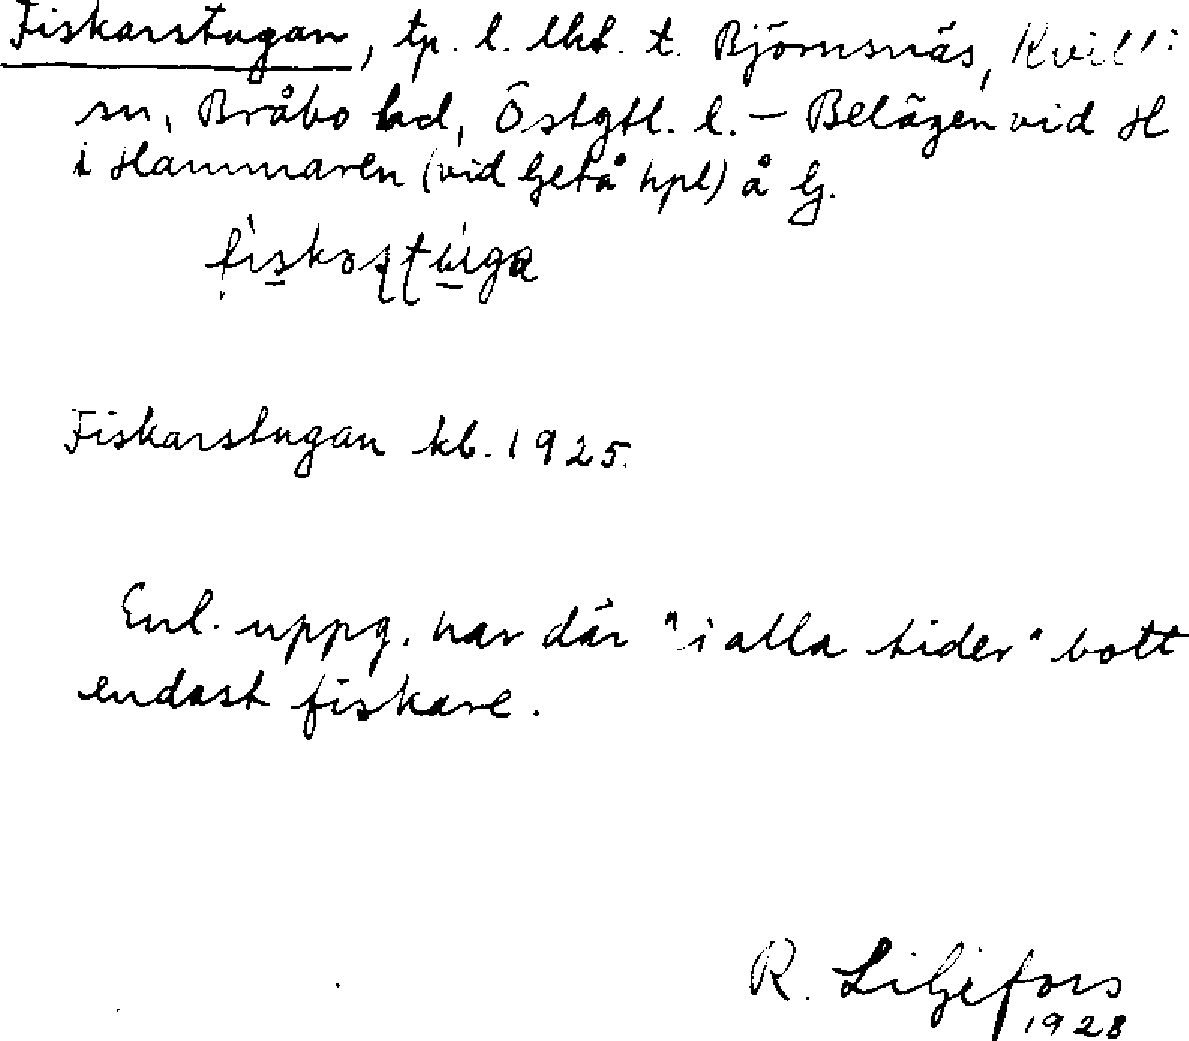 Fiskarstugan, tp. l. lht. t. Björnsnäs, Kvill:
sn, Bråbo hd, Östgtl. l. — Belägen vid H
i Hammaren (vid Getå hpl) å G.
Fiskarstugan kb. 1925.
Enl. uppg. har där "i alla tider" bott
endast fiskare.
R. Liljefors
1928